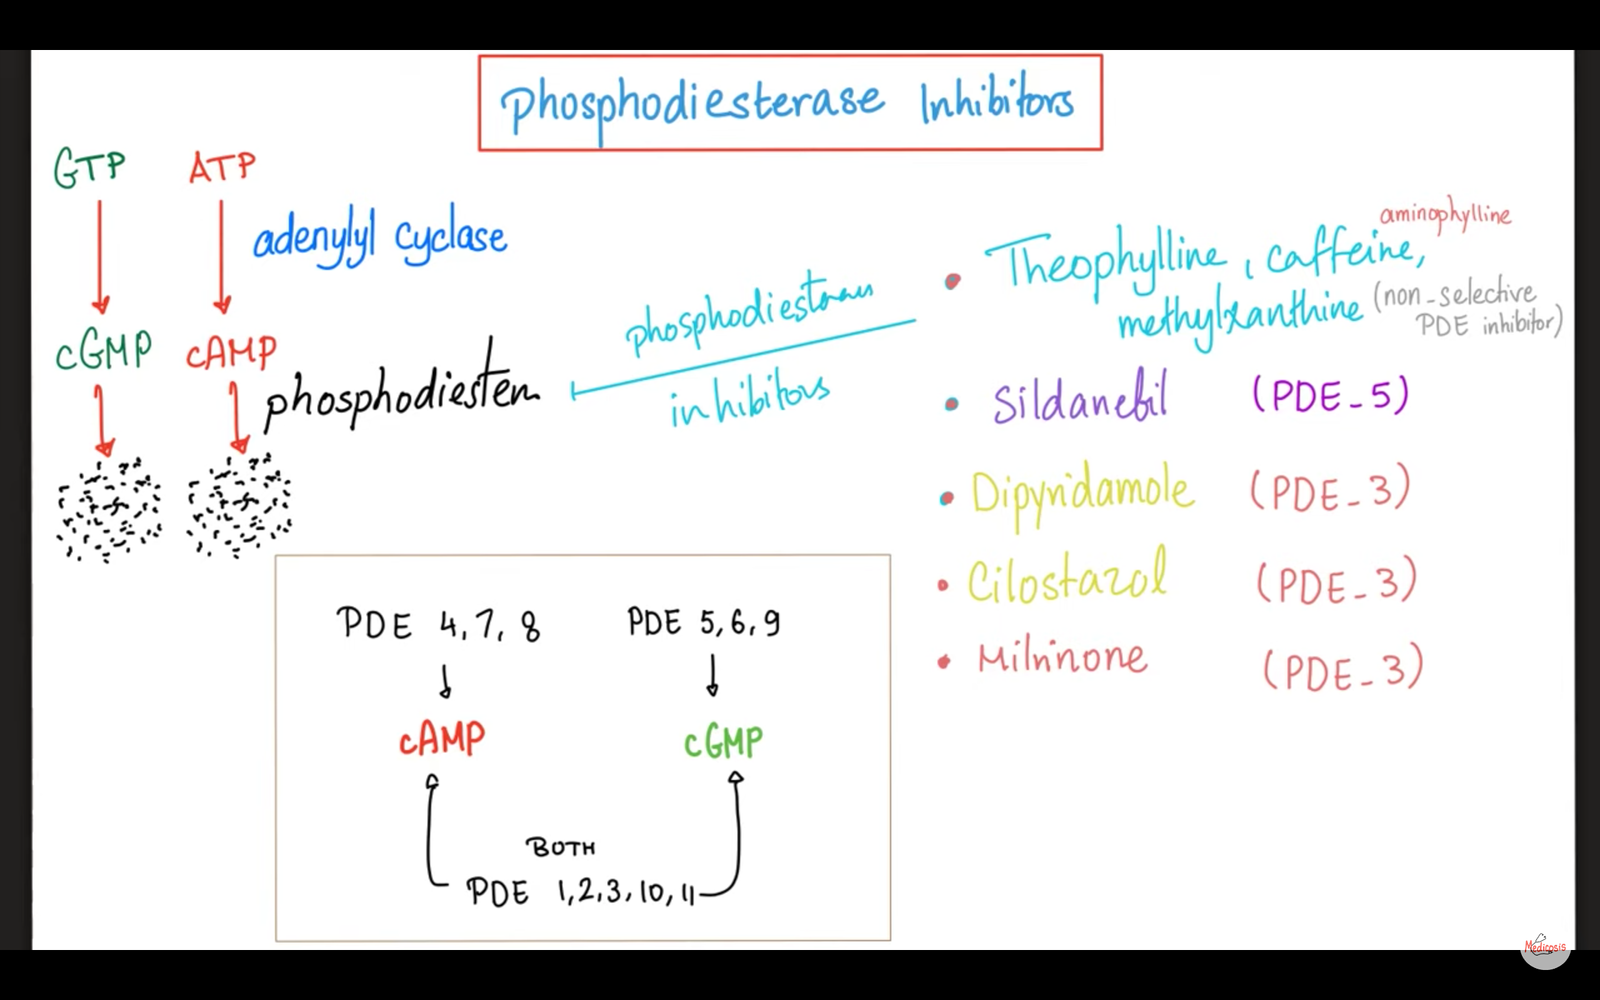 Phosphodiesterase Inhibitors
GTP ATP
adenylyl cyclase
cGMP cAMP
phosphodiesterase
phosphodiesterase
inhibitors
aminophylline
• Theophylline, caffeine,
methylxanthine (non-selective
PDE inhibitor)
• Sildanefil (PDE-5)
• Dipyridamole (PDE-3)
• Cilostazol (PDE-3)
• Milrinone (PDE-3)
PDE 4,7,8 PDE 5,6,9
cAMP cGMP
BOTH
PDE 1,2,3,10,11
Medicosis